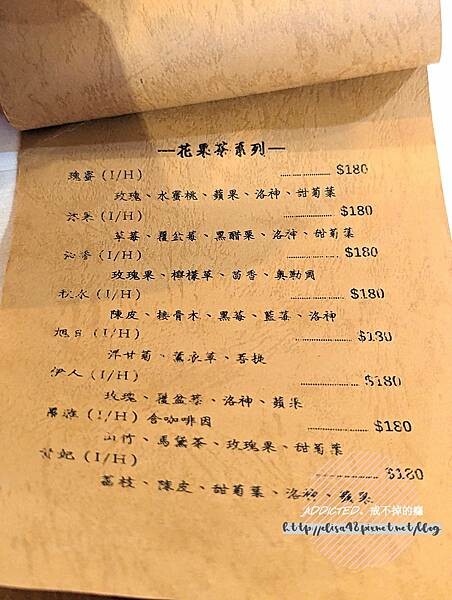 —花果茶系列—
瑰蜜 (I/H) $180
玫瑰、水蜜桃、蘋果、洛神、甜菊葉
沐果 (I/H) $180
草莓、覆盆莓、黑醋栗、洛神、甜菊葉
沁香 (I/H) $180
玫瑰果、檸檬草、茴香、奧勒岡
秋水 (I/H) $180
陳皮、接骨木、黑莓、藍莓、洛神
旭日 (I/H) $180
洋甘菊、薰衣草、菩提
伊人 (I/H) $180
玫瑰、覆盆莓、洛神、蘋果
(I/H) 含咖啡因 $180
山竹、馬黛茶、玫瑰果、甜菊葉
妃 (I/H) $180
荔枝、陳皮、甜菊葉、洛神、蘋果
ADDICTED、戒不掉的癮
http://elisa98.pixnet.net/blog